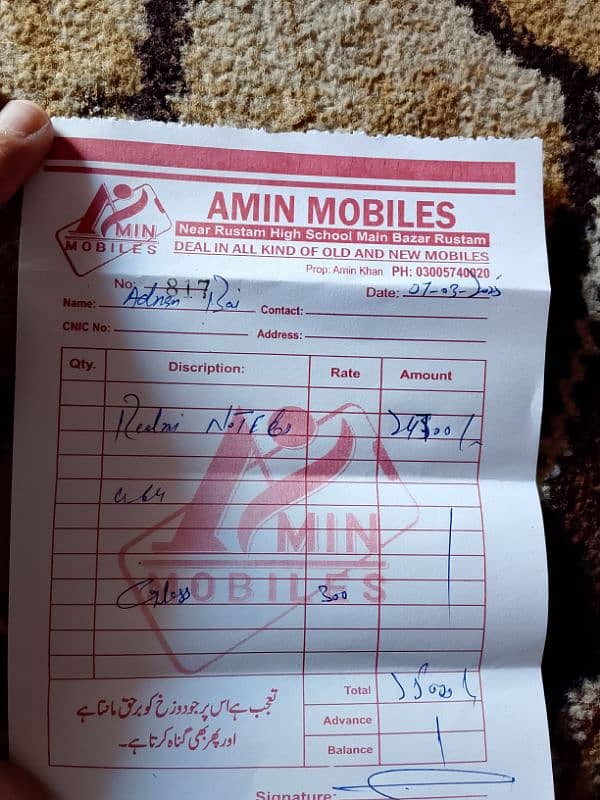 AMIN MOBILES
AMIN MOBILES
Near Rustam High School Main Bazar Rustam
DEAL IN ALL KIND OF OLD AND NEW MOBILES
Prop: Amin Khan PH: 03005740020
No: 817 Date:
Name: Adnan Contact:
CNIC No: Address:
Qty. Discription: Rate Amount
Redmi NOTE
AMIN
MOBILES
Glass 300
Total
Advance
Balance
تعجب ہے اس پر جو دوزخ کو برحق مانتا ہے
اور پھر بھی گناہ کرتا ہے۔
Signature: